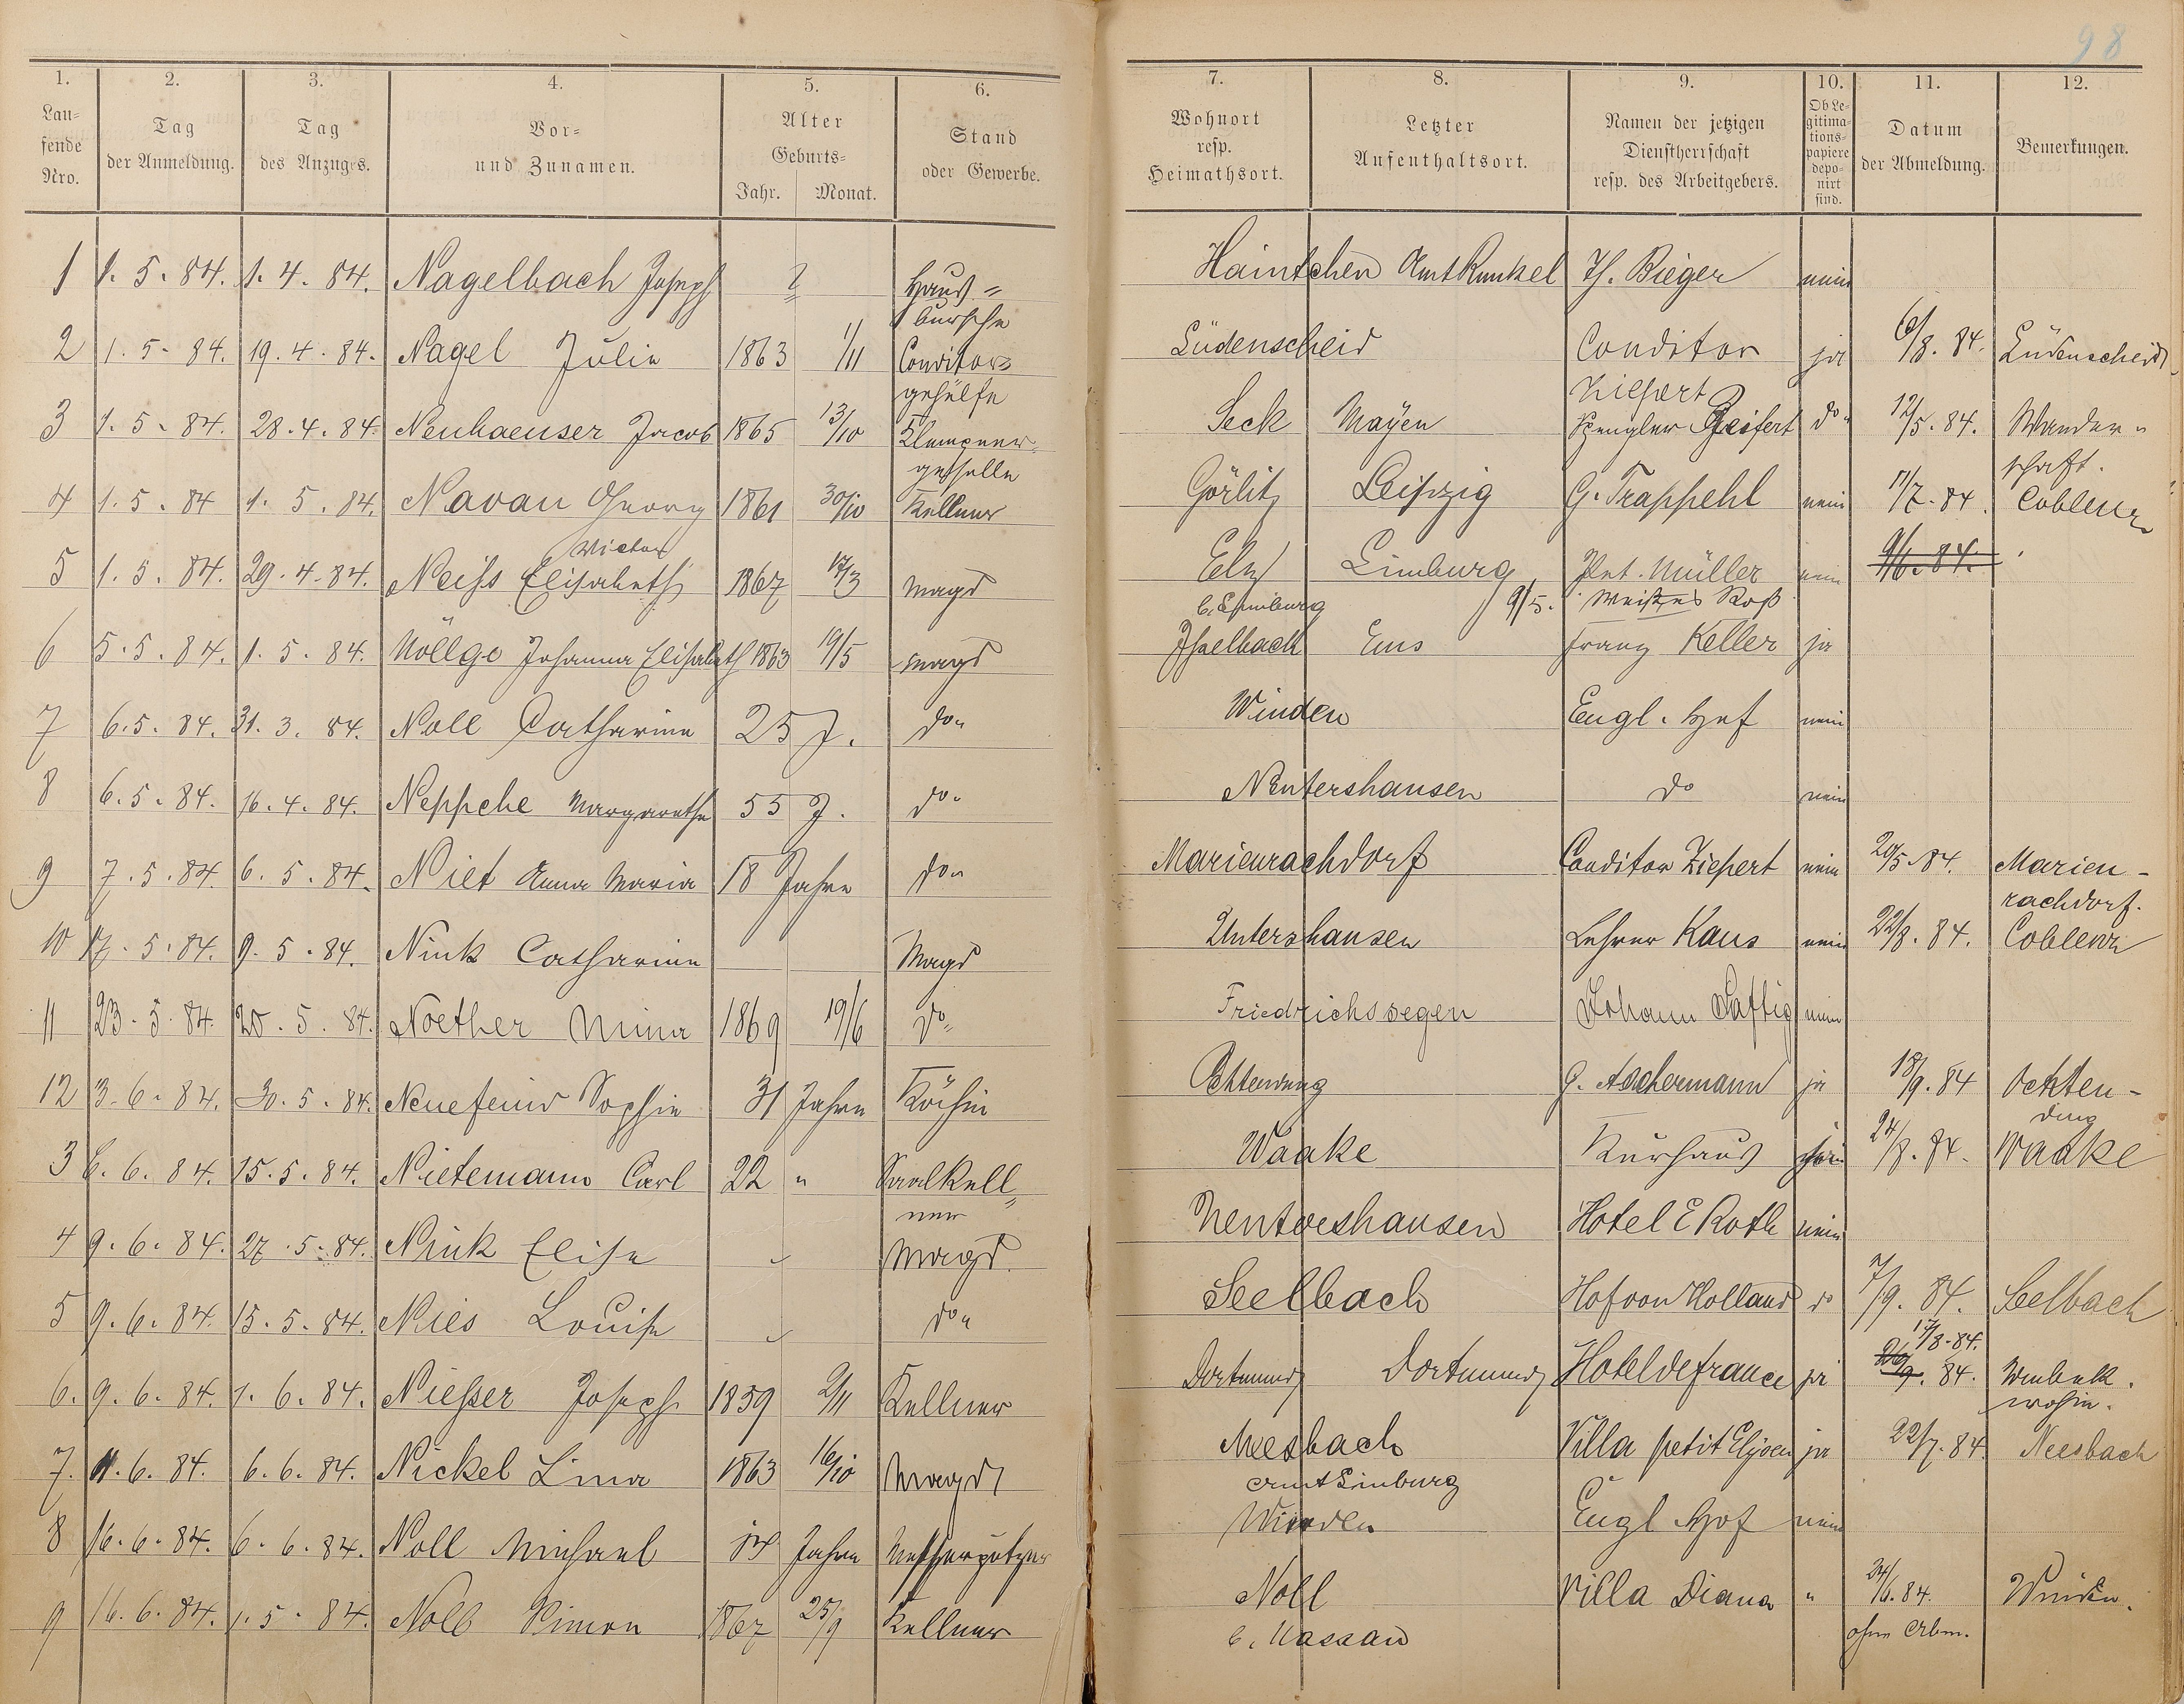 98
1. 2. 3. 4. 5. 6. 7. 8. 9. 10. 11. 12.
Lau-
fende
Nro.
Tag
der Anmeldung.
Tag
des Anzuges.
Vor-
und Zunamen.
Alter
Geburts-
Jahr. Monat.
Stand
oder Gewerbe.
Wohnort
resp.
Heimathsort.
Letzter
Aufenthaltsort.
Namen der jetzigen
Dienstherrschaft
resp. des Arbeitgebers.
Ob Le-
gitima-
tions-
papiere
depo-
nirt
sind.
Datum
der Abmeldung.
Bemerkungen.
1 1. 5. 84. 1. 4. 84. Nagelbach Joseph ? Haus= Haintchen Amt Runkel Th. Bieger nein
bursche
2 1. 5. 84. 19. 4. 84. Nagel Julie 1863 1/11 Conditor= Lüdenscheid Conditor ja 6/8. 84. Lüdenscheid
gehülfe Ziepert
3 1. 5. 84. 28. 4. 84. Neuhaeuser Jacob 1865 13/10 Klempner= Seck Mayen Spengler Geifert do 12/5. 84. Wander=
geselle schaft.
4 1. 5. 84 1. 5. 84. Navan Georg 1861 30/10 Kellner Görlitz Leipzig G. Trappehl nein 11/7. 84. Coblenz
Victor
5 1. 5. 84. 29. 4. 84. Neiss Elisabeth 1867 12/3 Magd Elz Limburg Pet. Müller nein 9/6. 84.
b. Limburg 9/5. Weißes Roß
6 5. 5. 84. 1. 5. 84. Nöllge Johanna Elisabeth 1863 19/5 Magd Isselbach Ems Franz Keller ja
7 6. 5. 84. 31. 3. 84. Noll Catharine 25 J. do Winden Engl. Hof nein
8 6. 5. 84. 16. 4. 84. Neppche Margarethe 55 J. do Nentershausen do nein
9 7. 5. 84. 6. 5. 84. Niet Anna Maria 18 Jahre do Marienrachdorf Conditor Ziepert nein 20/5. 84. Marien-
rachdorf.
10 17. 5. 84. 9. 5. 84. Nink Catharine Magd Untershausen Lehrer Kaus nein 22/8. 84. Coblenz
11 23. 5. 84. 20. 5. 84. Noether Mina 1869 19/6 do Friedrichssegen Johann Saftig nein
12 3. 6. 84. 30. 5. 84. Neuefeind Sophie 31 Jahre Köchin Ochtendung G. Aschermann ja 18/9. 84 Ochten-
dung
3 6. 6. 84. 15. 5. 84. Nietemann Carl 22 " Saalkell= Waake Kurhaus 24/8. 84. Waake
ner
4 9. 6. 84. 27. 5. 84. Nink Elise Magd. Nentershausen Hotel E Roth nein
5 9. 6. 84. 15. 5. 84. Nies Louise do Seelbach Hof von Holland do 7/9. 84. Seelbach
17/8. 84.
6. 9. 6. 84. 1. 6. 84. Niesser Joseph 1859 2/11 Kellner Dortmund Dortmund Hotel de france ja 26/9. 84. Unbek.
wohin.
7. 11. 6. 84. 6. 6. 84. Nickel Lina 1863 16/10 Magd Neesbach Villa petit Elysee ja 22/7. 84. Neesbach
Amt Limburg
8 16. 6. 84. 6. 6. 84. Noll Michael 14 Jahre Messerputzer Winden Engl Hof nein
9 16. 6. 84. 1. 5. 84. Noll Simon 1867 25/9 Kellner Noll Villa Diana " 24/6. 84. Winden.
b. Nassau ohne Abm.